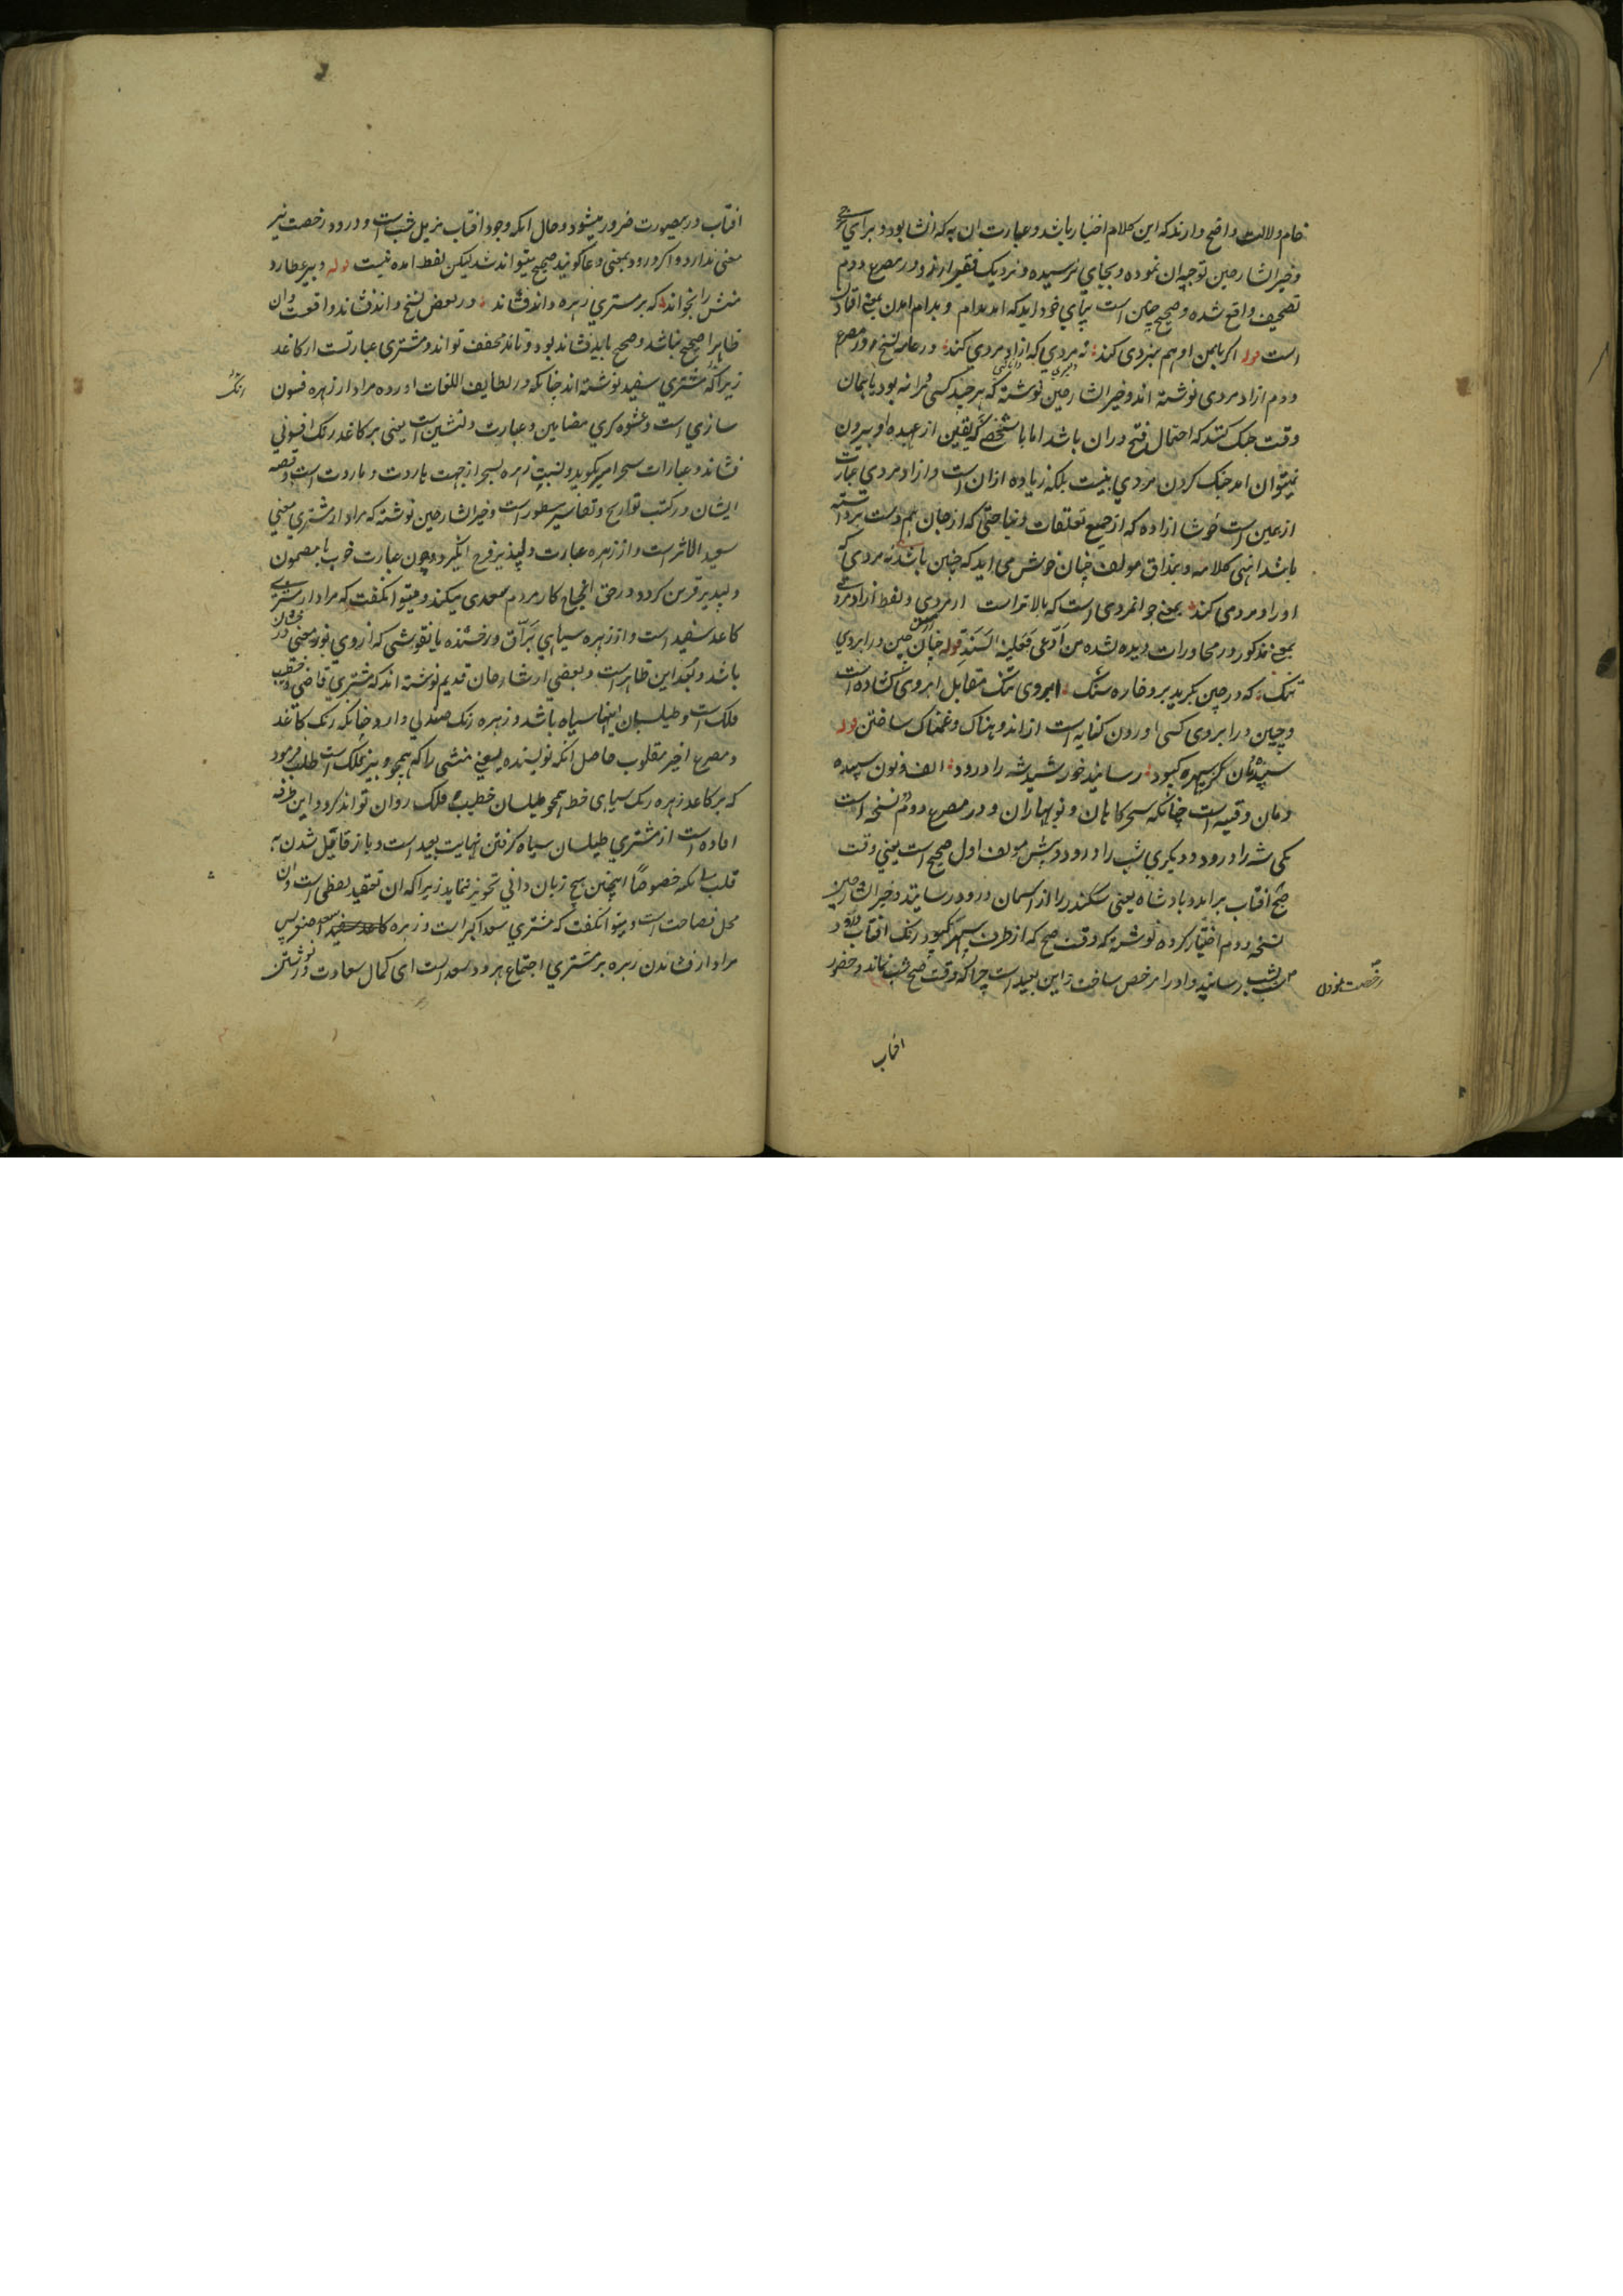 خام ولالت واضح دارند که این کلام اخبار باشد و عبارت ان په که انشا بود و برای
و خیر الشارحین توجیه ان نموده و بجای نرسیده و نزدیک فقیر ارزو در مصرع دوم
تصحیف واقع شده و صحیح چنین است بپای خود اید که امد بدام و بدام امدن بمعنی افتادن
است قوله اکر بامن او هم نبردی کند نه مردی که ازاد مردی کند در عامه نسخ در مصرع
دوم ازاد مردی نوشته اند و خیر الشارحین نوشته که هر چند کسی مردانه بود با همان
وقت جنک کند که احتمال فتح دران باشد اما با شخصی که یقین از عهده او بیرون
نمیتوان امد جنک کردن مردی نیست بلکه زیاده ازان است و ازاد مردی عبارت
ازهمین است خوشا ازاده که از جمیع تعلقات دنیا حتی که از جان هم دست برداشته
باشد انتهی کلامه و بمذاق مولف چنان خوش می اید که چنین باشد نه مردی که
او راد مردی کند بمعنی جوانمردی است که بالاتر است از مردی و لفظ ازاد مردی
بمعنی مذکور در محاورات دیده نشده من ادعی فعلیه السند قوله چنان چین در ابروی
تنک که در چین بکرید برو خاره سنک ابروی تنک مقابل ابروی کشاده است
و چین در ابروی کسی اوردن کنایه است از اندوهناک و غمناک ساختن قوله
سپیده دمان کز سپهر کبود رسانید خورشید شه را درود الف و نون سپیده
دمان وقتیه است چنانکه سحرکاهان و نوبهاران و در مصرع دوم نسخه است
یکی شه را درود و دیکری شب را درود و پیش مولف اول صحیح است یعنی وقت
صبح افتاب براید و بادشاه یعنی سکندر را از اسمان درود رسانید و خیر الشارحین
نسخه دوم اختیار کرده نوشته که وقت صبح که از طرف سپهر کبود رنک افتاب درود
بشب رسانید و او را مرخص ساخت و این بعید است چرا که وقت صبح شب نماند و حضور
رخصت نمودن
افتاب
افتاب درینصورت ضرور میشود و حال انکه وجود افتاب مزیل شب است و درود رخصت نیز
معنی ندارد و اکر درود بمعنی دعا کویند صحیح میتواند شد لیکن لفظ امده نیست قوله دبیر عطارد
منش را نخواند که بر مشتری زهره داند فشاند در بعض نسخ و اند فشاند واقعست و ان
ظاهرا صحیح نباشد و صحیح باید فشاند بود و تاند مخفف تواند و مشتری عبارتست از کاغذ
زیرا که مشتری سفید نوشته اند چنانکه در لطایف اللغات اورده مراد از زهره فسون
سازی است و عشوه کری مضامین و عبارت دلنشین است یعنی بر کاغذ رنک افسونی
فشاند و عبارات سحرامیز بکوید و نسبت زهره بسحر از جهت هاروت و ماروت است و قصه
ایشان در کتب تواریخ و تفاسیر مسطور است و خیر الشارحین نوشته که مراد از مشتری معنی
سعید الاثر است و از زهره عبارت دلپذیر فرح انکیز و چون عبارت خوب با مضمون
دلپذیر قرین کردد در حق انجاح کار مردم سعدی میکند و میتوانکفت که مراد از مشتری
کاغذ سفید است و از زهره سیاهی براق و رخشنده یا نقوشی که از روی نور معنی درخشان
باشد و بعد این ظاهر است و بعضی از شارحان قدیم نوشته اند که مشتری قاضی و خطیب
فلک است و طیلسان اینها سیاه باشد و زهره رنک صندلی دارد چنانکه رنک کاغذ
و مصرع اخیر مقلوب حاصل انکه نویسنده یعنی منشی را که همچو دبیر فلک است طلب فرمود
که بر کاغذ زهره رنک سیاهی خط همچو طیلسان خطیب فلک روان تواند کرد و این طرفه
افاده است از مشتری طیلسان سیاه کرفتن نهایت بعید است و باز قایل شدن به
قلب بلکه خصوصا اینچنین هیچ زبان دانی تجویز ننماید زیرا که ان تعقید لفظی است و ان
مخل فصاحت است و میتوانکفت که مشتری سعد اکبر است و زهره سعد اصغر پس
مراد از فشاندن زهره بر مشتری اجتماع هر دو سعد است ای کمال سعادت در نوشتن